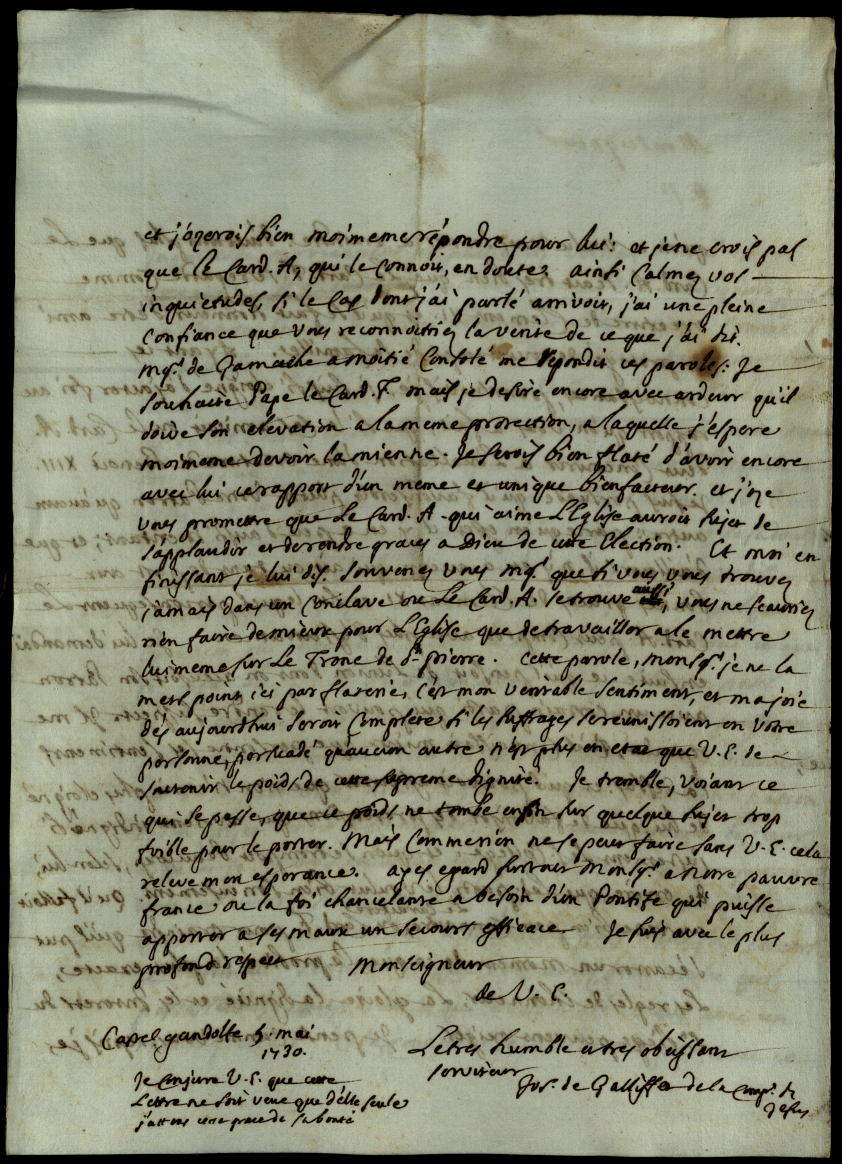 et j'ozerois bien moimeme répondre pour lui: et je ne crois pas
que le Card. A, qui le connoit, en doute. ainsi Calmez vos
inquietudes, si le Cas dont j'ai parlé arrivoit, j'ai une pleine
Confiance que vous reconnoitriez la verité de ce que j'ai dit.
Mgr. de Gamache a moitié Consolé me répondit ces paroles: Je
souhaite Pape le Card. F. mais je desire encore avec ardeur qu'il
doive son elevation a la meme protection, a laquelle j'espere
moimeme devoir la mienne. Je serois bien flaté d'avoir encore
avec lui ce rapport d'un meme et unique bienfacteur. et j'oze
vous promettre que Le Card. A. qui aime L'Eglise auroit sujet de
s'applaudir et de rendre graces a Dieu de cette Election. Et moi en
finissant je lui dis. Souvenez vous mgr. que si vous vous trouvez
jamais dans un Conclave ou Le Card. A. se trouve aussi, vous ne scauriez
rien faire de mieux pour L'Eglise que de travailler a le mettre
lui meme sur Le Trone de St. pierre. Cette parole, Monsgr. je ne la
mets point ici par flaterie, c'est mon veritable sentiment, et ma joie
dés aujourdhui seroit Complete si les suffrages se reunissoient en votre
personne, persuadé qu'aucun autre n'est plus en etat que V. E. de
soutenir le poids de cette supreme dignité. Je tremble, voiant ce
qui se passe, que ce poids ne tombe enfin sur quelque sujet trop
foible pour le porter. Mais Comme rien ne se peut faire sans V. E. cela
releve mon esperance. ayes egard surtout Monsgr. a notre pauvre
france ou la foi chancelante a besoin d'un Pontife qui puisse
apporter a ses maux un secours efficace. Je suis avec le plus
profond respect Monseigneur
de V. E.
Castel gandolfe 5. mai
1730.
Le tres humble et tres obeissant
serviteur
Jos. de Galliffet de la Comp. de
Jesus
Je Conjure V. E. que cette
Lettre ne soit veue que d'elle seule
j'attens cette grace de sa bonté